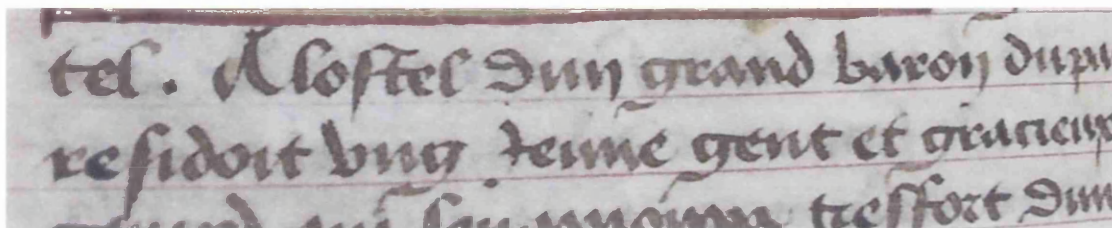 tel. A lostel dun grand baron du pa
residoit vng Jeune gent et gracieux
qui tresfort dun